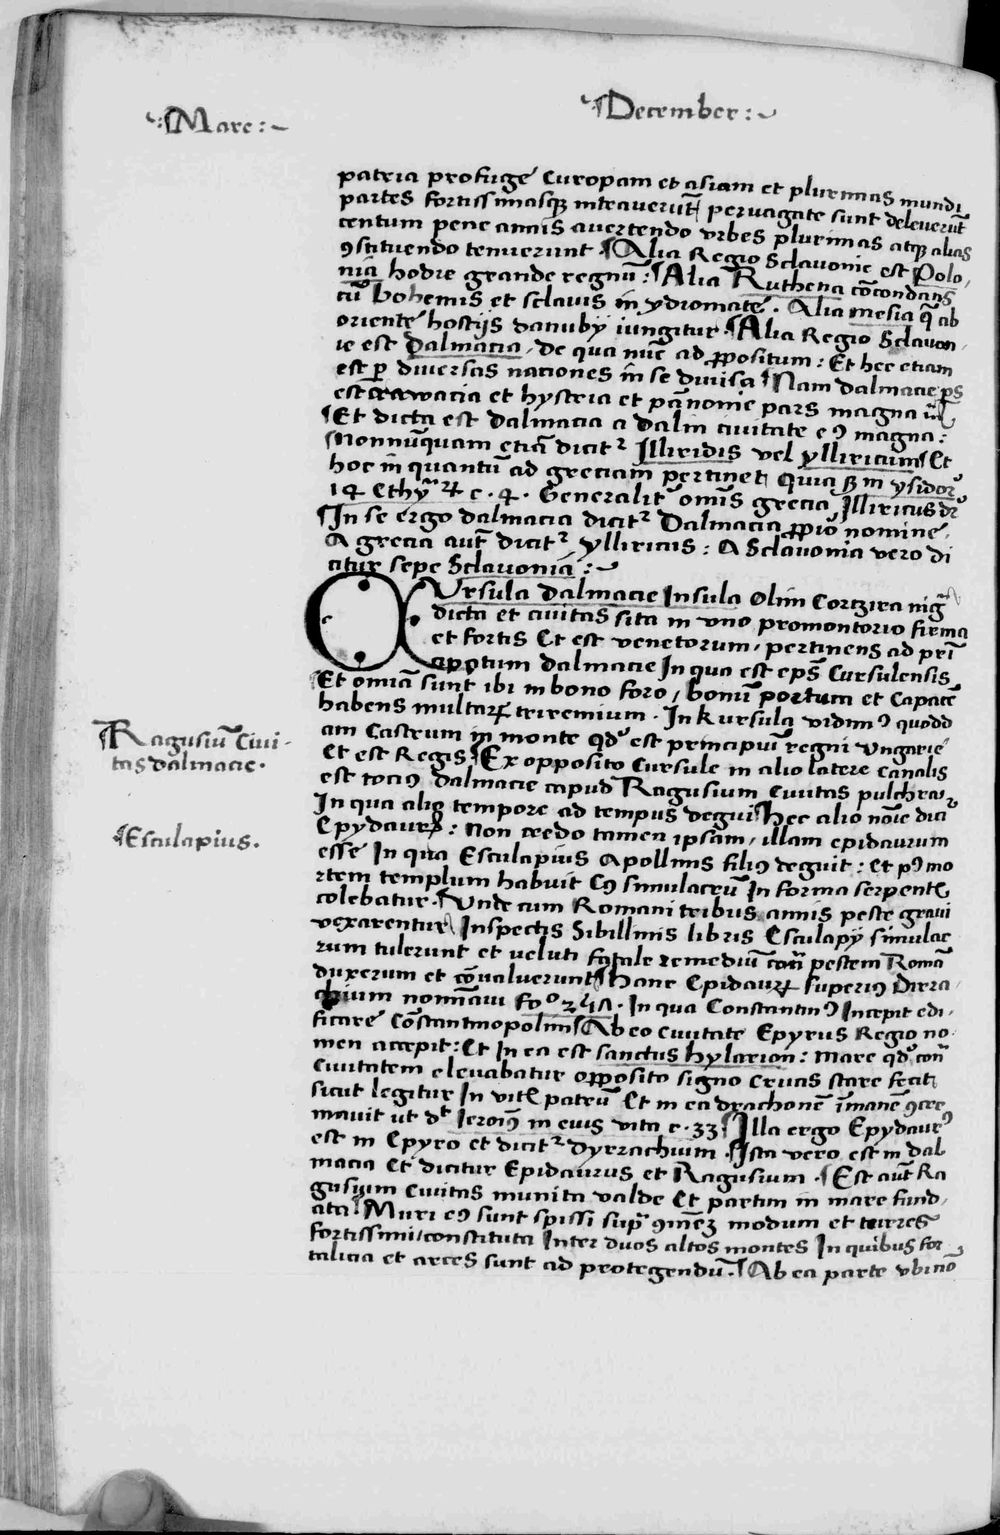 Mare :~
December :~
patria profuge Europam et asiam et plurimas mundi
partes fortissimasq; intraverūt pervagate sunt deleverūt
centum pene annis avertendo vrbes plurimas atq; alias
ꝯstituendo tenuerunt ¶ Alia Regio Sclavonie est Polo,
nia hodie grande regnū: ¶ Alia Ruthena cōcordans
cū bohemis et sclavis in ydiomate. Alia mesia q̄ ab
oriente hostijs danubÿ iungitur. ¶ Alia Regio Sclavon,
ie est Dalmacia, de qua nūc ad ꝓpositum: Et hec etiam
est ꝑ diversas nationes in se divisa ¶ Nam dalmacie ps
est crawacia et hystria et pānonie pars magna
¶ Et dicta est dalmacia a dalin civitate eꝰ magna:
¶ Nonnūquam etiā dicitᷣ Illiridis vel ylliricum ¶ Et
hoc in quantū ad greciam pertinet, Quia ysidor
14 Ethy c. 4. Generalitᷣ omīs grecia Illiricus dr̄
¶ In se ergo dalmacia dicitᷣ Dalmacia ꝓpio nomine,
A grecia aut dicitᷣ ylliricus: A Sclavonia vero di
citur sepe Sclavonia :~
Cursula dalmacie Insula Olim Cortzira nig̃
dicta et civitas sita in vno promontorio firma
et fortis Et est venetorum, pertinens ad prī
capatum dalmacie In qua est eps̄ Cursulensis
Et omīa sunt ibi in bono foro, bonū portum et Capacē
habens multarꝝ triremium. In kursula vidimꝰ quodd
am Castrum in monte qd̊ est principiū regni vngarie
Et est Regis ¶ Ex opposito Cursule in alio latere Canalis
est tociꝰ dalmacie capud Ragusium Civitas pulchra,
In qua alio tempore ad tempus degui ¶ Hec alio noīe dici
Epydaurꝰ: Non credo tamen ipsam, illam epidaurum
esse In qua Esculapius Apollinis filiꝰ deguit: Et pꝰ mo
rtem templum habuit Eꝰ simulacrū In forma serpentis
colebatur. ¶ Vnde cum Romani tribus annis peste gravi
vexarentur Inspectis Sibillinis libris Esculapÿ simulac
rum tulerunt et veluti fatale remediū cont̄ pestem Romā
duxerum et ꝯvaluerunt ¶ Hanc Epidaurꝝ superiꝰ Dirra,
chium nominavi fo. In qua Constantinꝰ Incepit edi,
ficare Cōstantinopolim ¶ Ab eo civitate Epyrus Regio no,
men accepit: Et In ea est sanctus hylarion: mare qd̊ cont̄
civitatem elevabatur opposito signo crucis stare fecit
sicut legitur In vitis patrū Et in ea drachonē īmanē ꝯcre
mavit ut dt Ieronimꝰ in eius vita c. 33 ¶ Illa ergo Epydaurꝰ
est in Epyro et dicitᷣ dyrrachium. ¶ Ista vero est in dal
macia Et dicitur Epidaurus et Ragusium. ¶ Est aut̄ Ra
gusium civitas munita valde Et partim in mare fund,
ata ¶ Muri eꝰ sunt spissi supᷓ ꝯmunē modum et turres
fortissimi, constituta Inter duos altos montes In quibus for
talicia et arces sunt ad protegendū. ¶ Ab ea parte vbi nō
¶ Ragusiū Civi,
tas dalmacie.
¶ Esculapius.